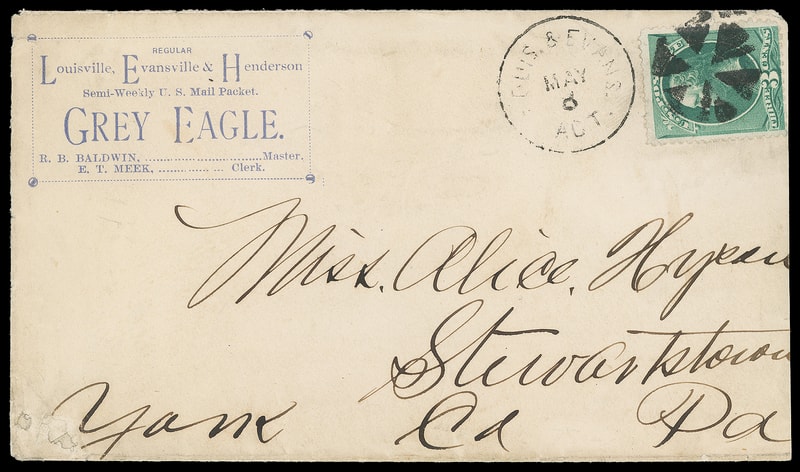 REGULAR
Louisville, Evansville & Henderson
Semi-Weekly U. S. Mail Packet.
GREY EAGLE.
R. B. BALDWIN, ........................................Master,
E. T. MEEK, ..................... Clerk.
LOUIS. & EVANS.
MAY
6
AGT.
Miss. Alice.
Stewartstown
York Co Pa